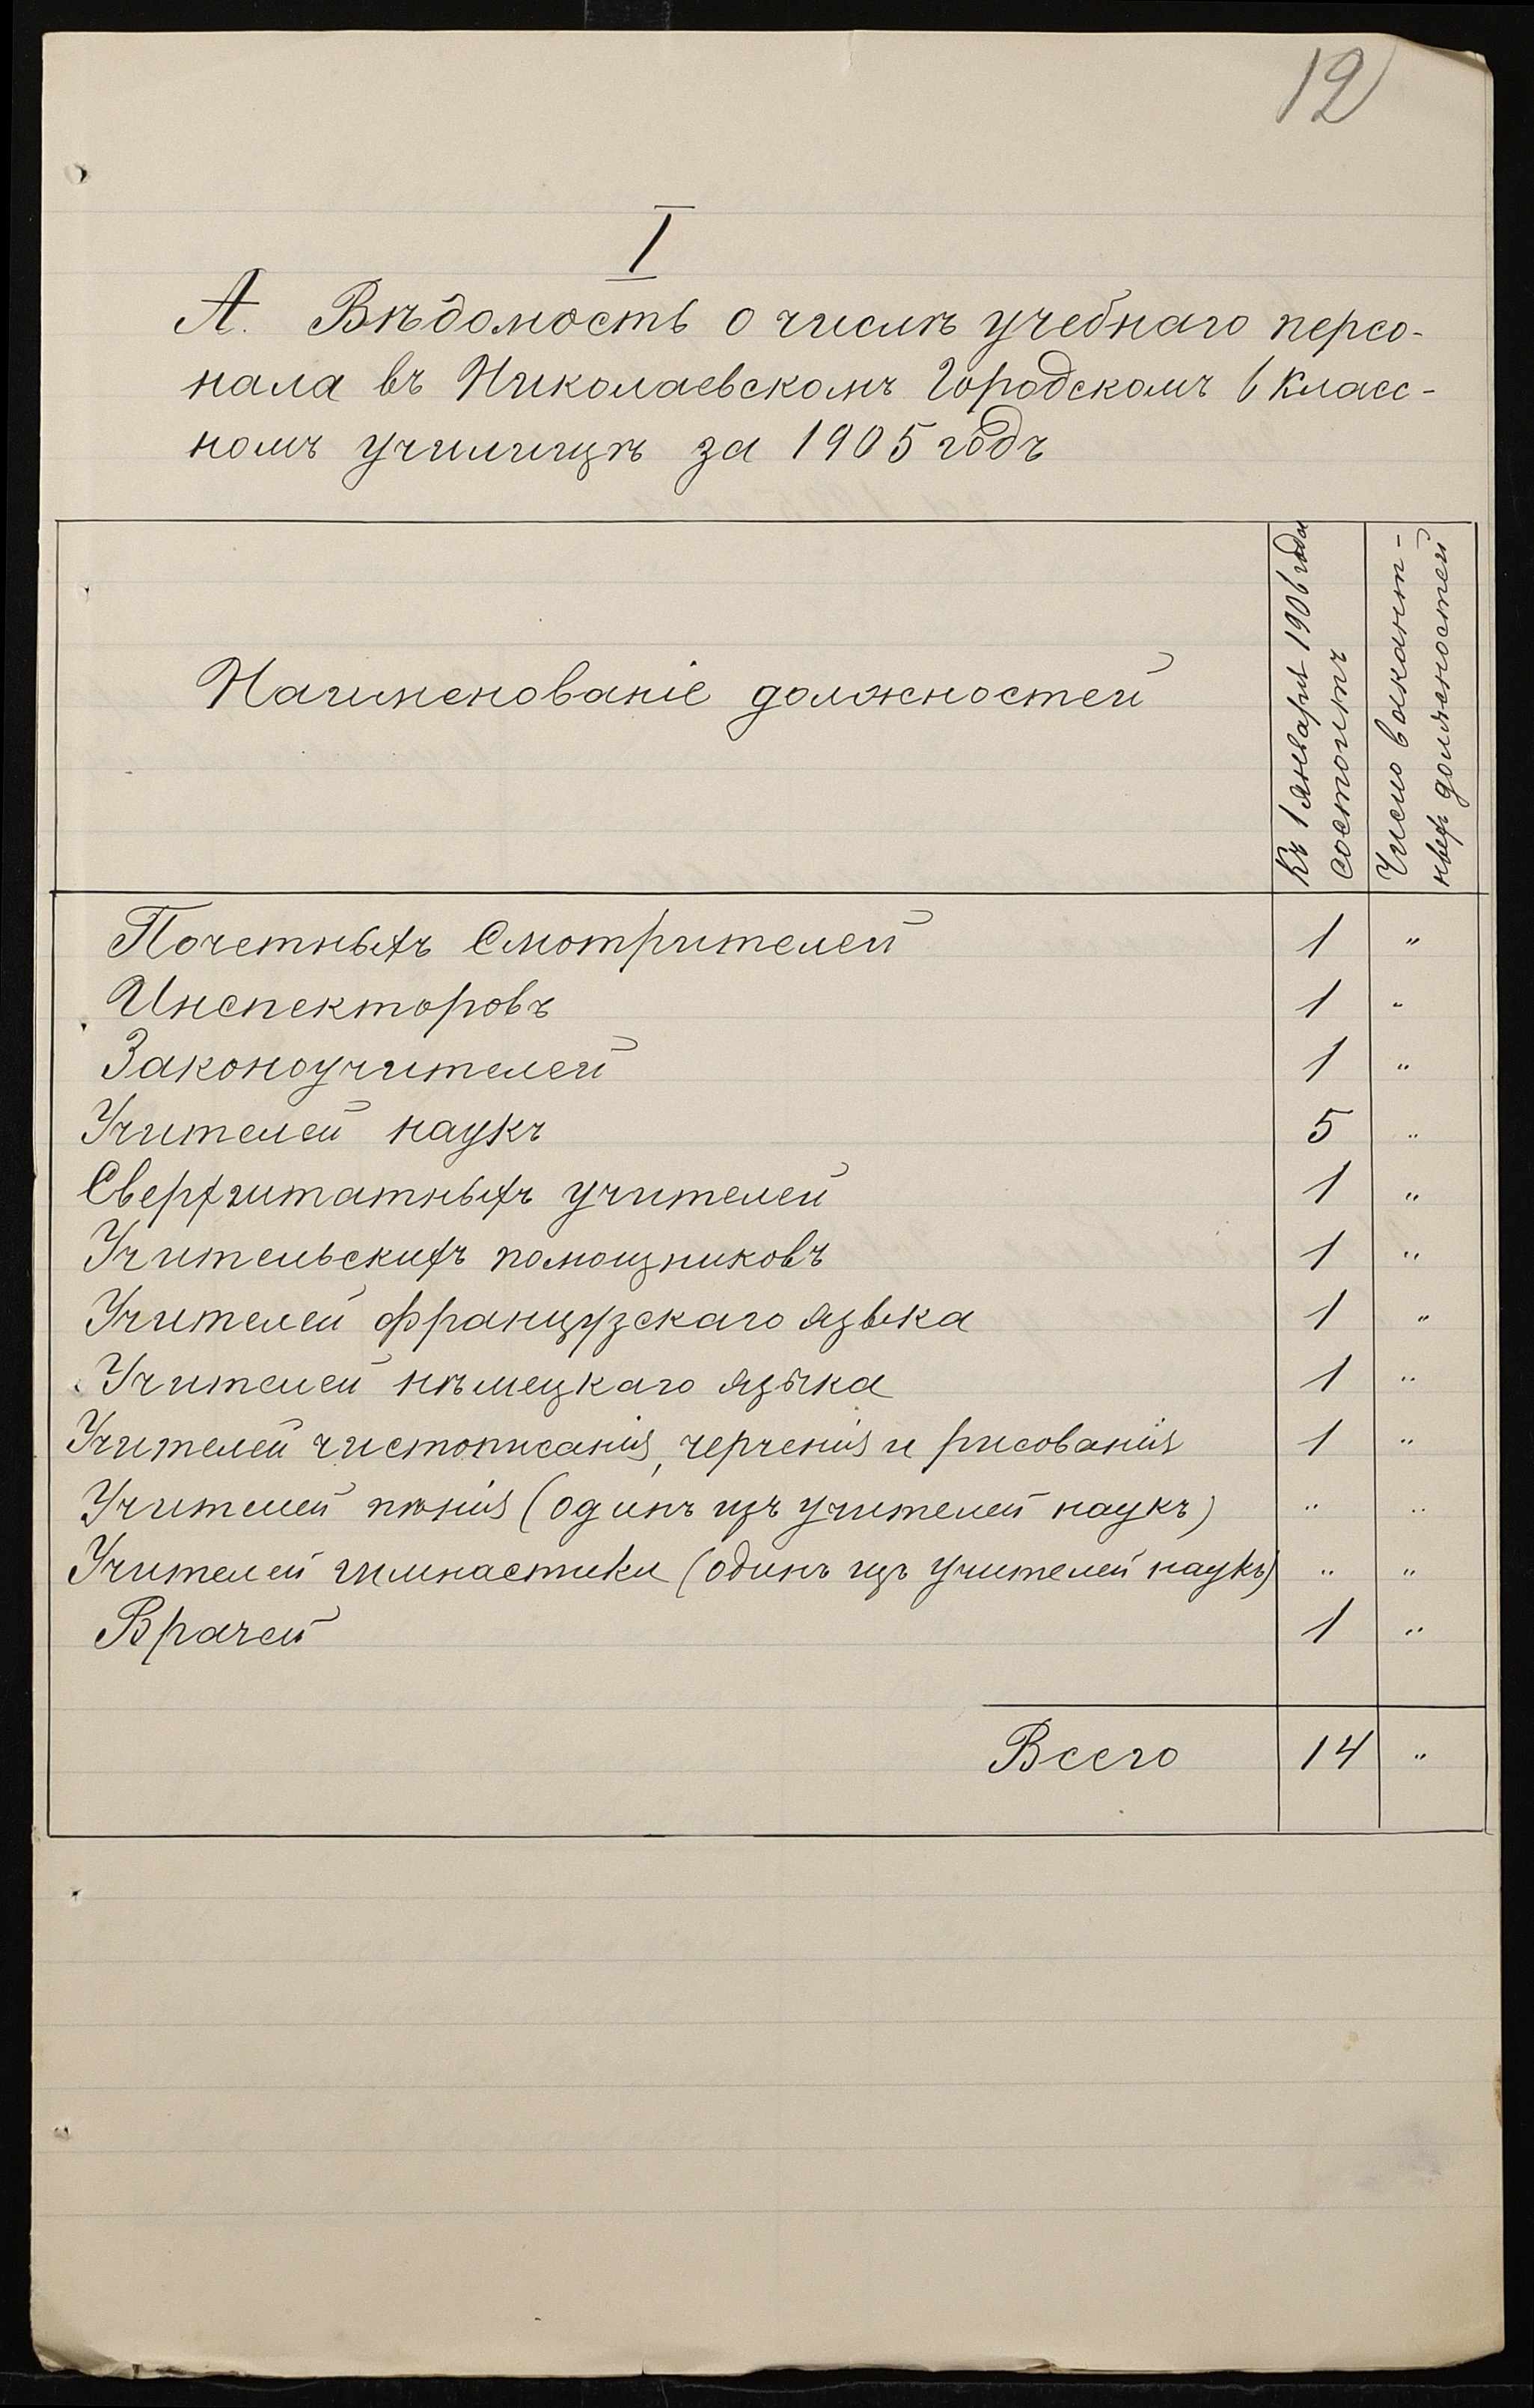 12
I
А. Вѣдомость о числѣ учебнаго персо-
нала въ Николаевскомъ Городскомъ 6 класс-
номъ училищѣ за 1905 годъ
Наименованіе должностей
Къ 1 января 1906 года
состоитъ
Число вакант-
ныхъ должностей
Почетныхъ Смотрителей 1 "
Инспекторовъ 1 "
Законоучителей 1 "
Учителей наукъ 5 "
Сверхштатныхъ учителей 1 "
Учительскихъ помощниковъ 1 "
Учителей французскаго языка 1 "
Учителей нѣмецкаго языка 1 "
Учителей чистописанія, черченія и рисованія 1 "
Учителей пѣнія (одинъ изъ учителей наукъ) " "
Учителей гимнастики (одинъ изъ учителей наукъ) " "
Врачей 1 "
Всего 14 "